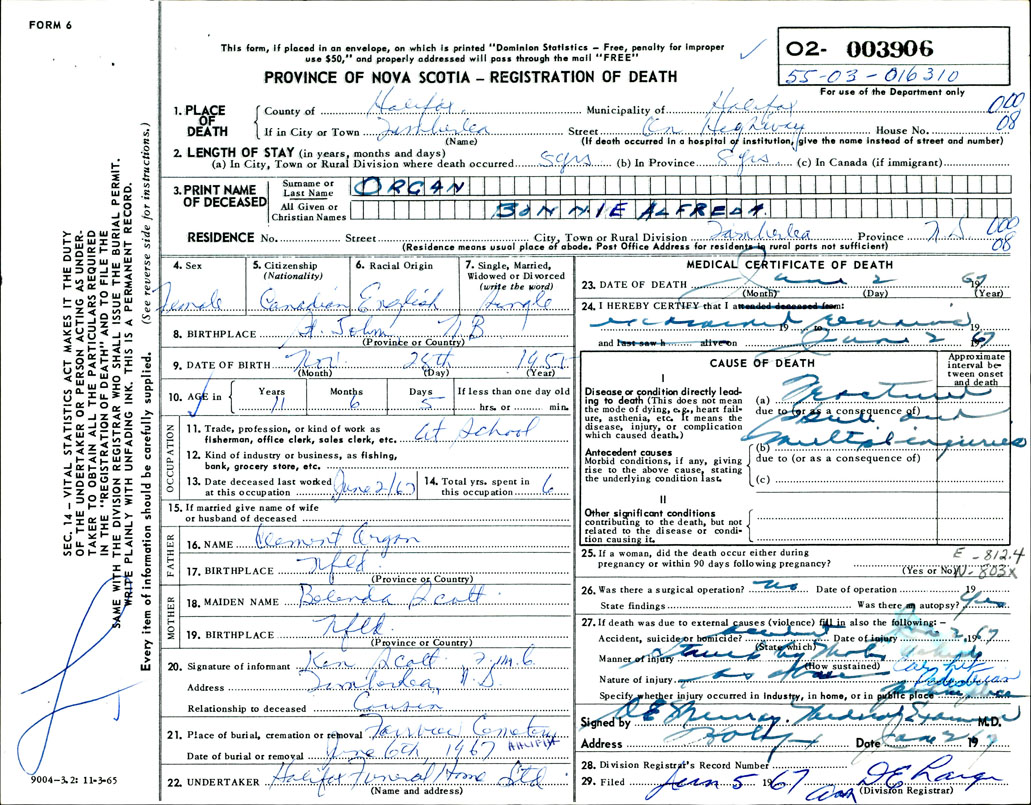 FORM 6
This form, if placed in an envelope, on which is printed "Dominion Statistics – Free, penalty for improper
use $50," and properly addressed will pass through the mail "FREE"
PROVINCE OF NOVA SCOTIA – REGISTRATION OF DEATH
02- 003906
55-03-016310
For use of the Department only
SEC. 14 – VITAL STATISTICS ACT MAKES IT THE DUTY
OF THE UNDERTAKER OR PERSON ACTING AS UNDER-
TAKER TO OBTAIN ALL THE PARTICULARS REQUIRED
IN THE "REGISTRATION OF DEATH" AND TO FILE THE
SAME WITH THE DIVISION REGISTRAR WHO SHALL ISSUE THE BURIAL PERMIT.
WRITE PLAINLY WITH UNFADING INK. THIS IS A PERMANENT RECORD.
Every item of information should be carefully supplied. (See reverse side for instructions.)
1. PLACE OF DEATH
County of Halifax Municipality of Halifax 000
If in City or Town Timberlea Street On Highway House No. 08
(Name) (If death occurred in a hospital or institution, give the name instead of street and number)
2. LENGTH OF STAY (in years, months and days)
(a) In City, Town or Rural Division where death occurred 5yrs (b) In Province 8yrs (c) In Canada (if immigrant)
3. PRINT NAME OF DECEASED
Surname or Last Name ORGAN
All Given or Christian Names BONNIE ALFREDA
RESIDENCE No. Street City, Town or Rural Division Timberlea Province N.S 000
(Residence means usual place of abode. Post Office Address for residents in rural parts not sufficient) 08
4. Sex Female
5. Citizenship (Nationality) Canadian
6. Racial Origin English
7. Single, Married, Widowed or Divorced (write the word) Single
8. BIRTHPLACE St. John N B
(Province or Country)
9. DATE OF BIRTH Nov. 28th 1955
(Month) (Day) (Year)
10. AGE in Years 11 Months 6 Days 5 If less than one day old hrs. or min.
OCCUPATION
11. Trade, profession, or kind of work as fisherman, office clerk, sales clerk, etc. At School
12. Kind of industry or business, as fishing, bank, grocery store, etc.
13. Date deceased last worked at this occupation June 2/67
14. Total yrs. spent in this occupation 6
15. If married give name of wife or husband of deceased
FATHER
16. NAME Clement Organ
17. BIRTHPLACE Nfld.
(Province or Country)
MOTHER
18. MAIDEN NAME Belenda Scott
19. BIRTHPLACE Nfld.
(Province or Country)
20. Signature of informant Ken Scott
Address Timberlea, N.S.
Relationship to deceased Cousin
21. Place of burial, cremation or removal Fairview Cemetery
Date of burial or removal June 6th 1967 HALIFAX
22. UNDERTAKER Halifax Funeral Home Ltd
(Name and address)
9004–3.2: 11-3-65
MEDICAL CERTIFICATE OF DEATH
23. DATE OF DEATH June 2 1967
(Month) (Day) (Year)
24. I HEREBY CERTIFY that I attended deceased from:
19 to 19
and last saw h alive on June 2 1967
CAUSE OF DEATH
Approximate interval between onset and death
I
Disease or condition directly leading to death (This does not mean the mode of dying, e.g., heart failure, asthenia, etc. It means the disease, injury, or complication which caused death.)
(a) Fracture
due to (or as a consequence of)
skull and
multiple injuries
Antecedent causes
Morbid conditions, if any, giving rise to the above cause, stating the underlying condition last.
(b)
due to (or as a consequence of)
(c)
II
Other significant conditions contributing to the death, but not related to the disease or condition causing it.
25. If a woman, did the death occur either during pregnancy or within 90 days following pregnancy?
(Yes or No)
E - 812.4
N - 803x
26. Was there a surgical operation? no Date of operation 19
State findings Was there an autopsy? Yes
27. If death was due to external causes (violence) fill in also the following: –
Accident, suicide or homicide? accident Date of injury June 2 1967
(State which)
Manner of injury Struck by Motor Vehicle
(How sustained) Car hit
Nature of injury as above Pedestrian
Specify whether injury occurred in Industry, in home, or in public place
Signed by D E Murray. Medical Examiner M.D.
Address Date June 2 1967
28. Division Registrar's Record Number
29. Filed Jun 5 1967
(Division Registrar)